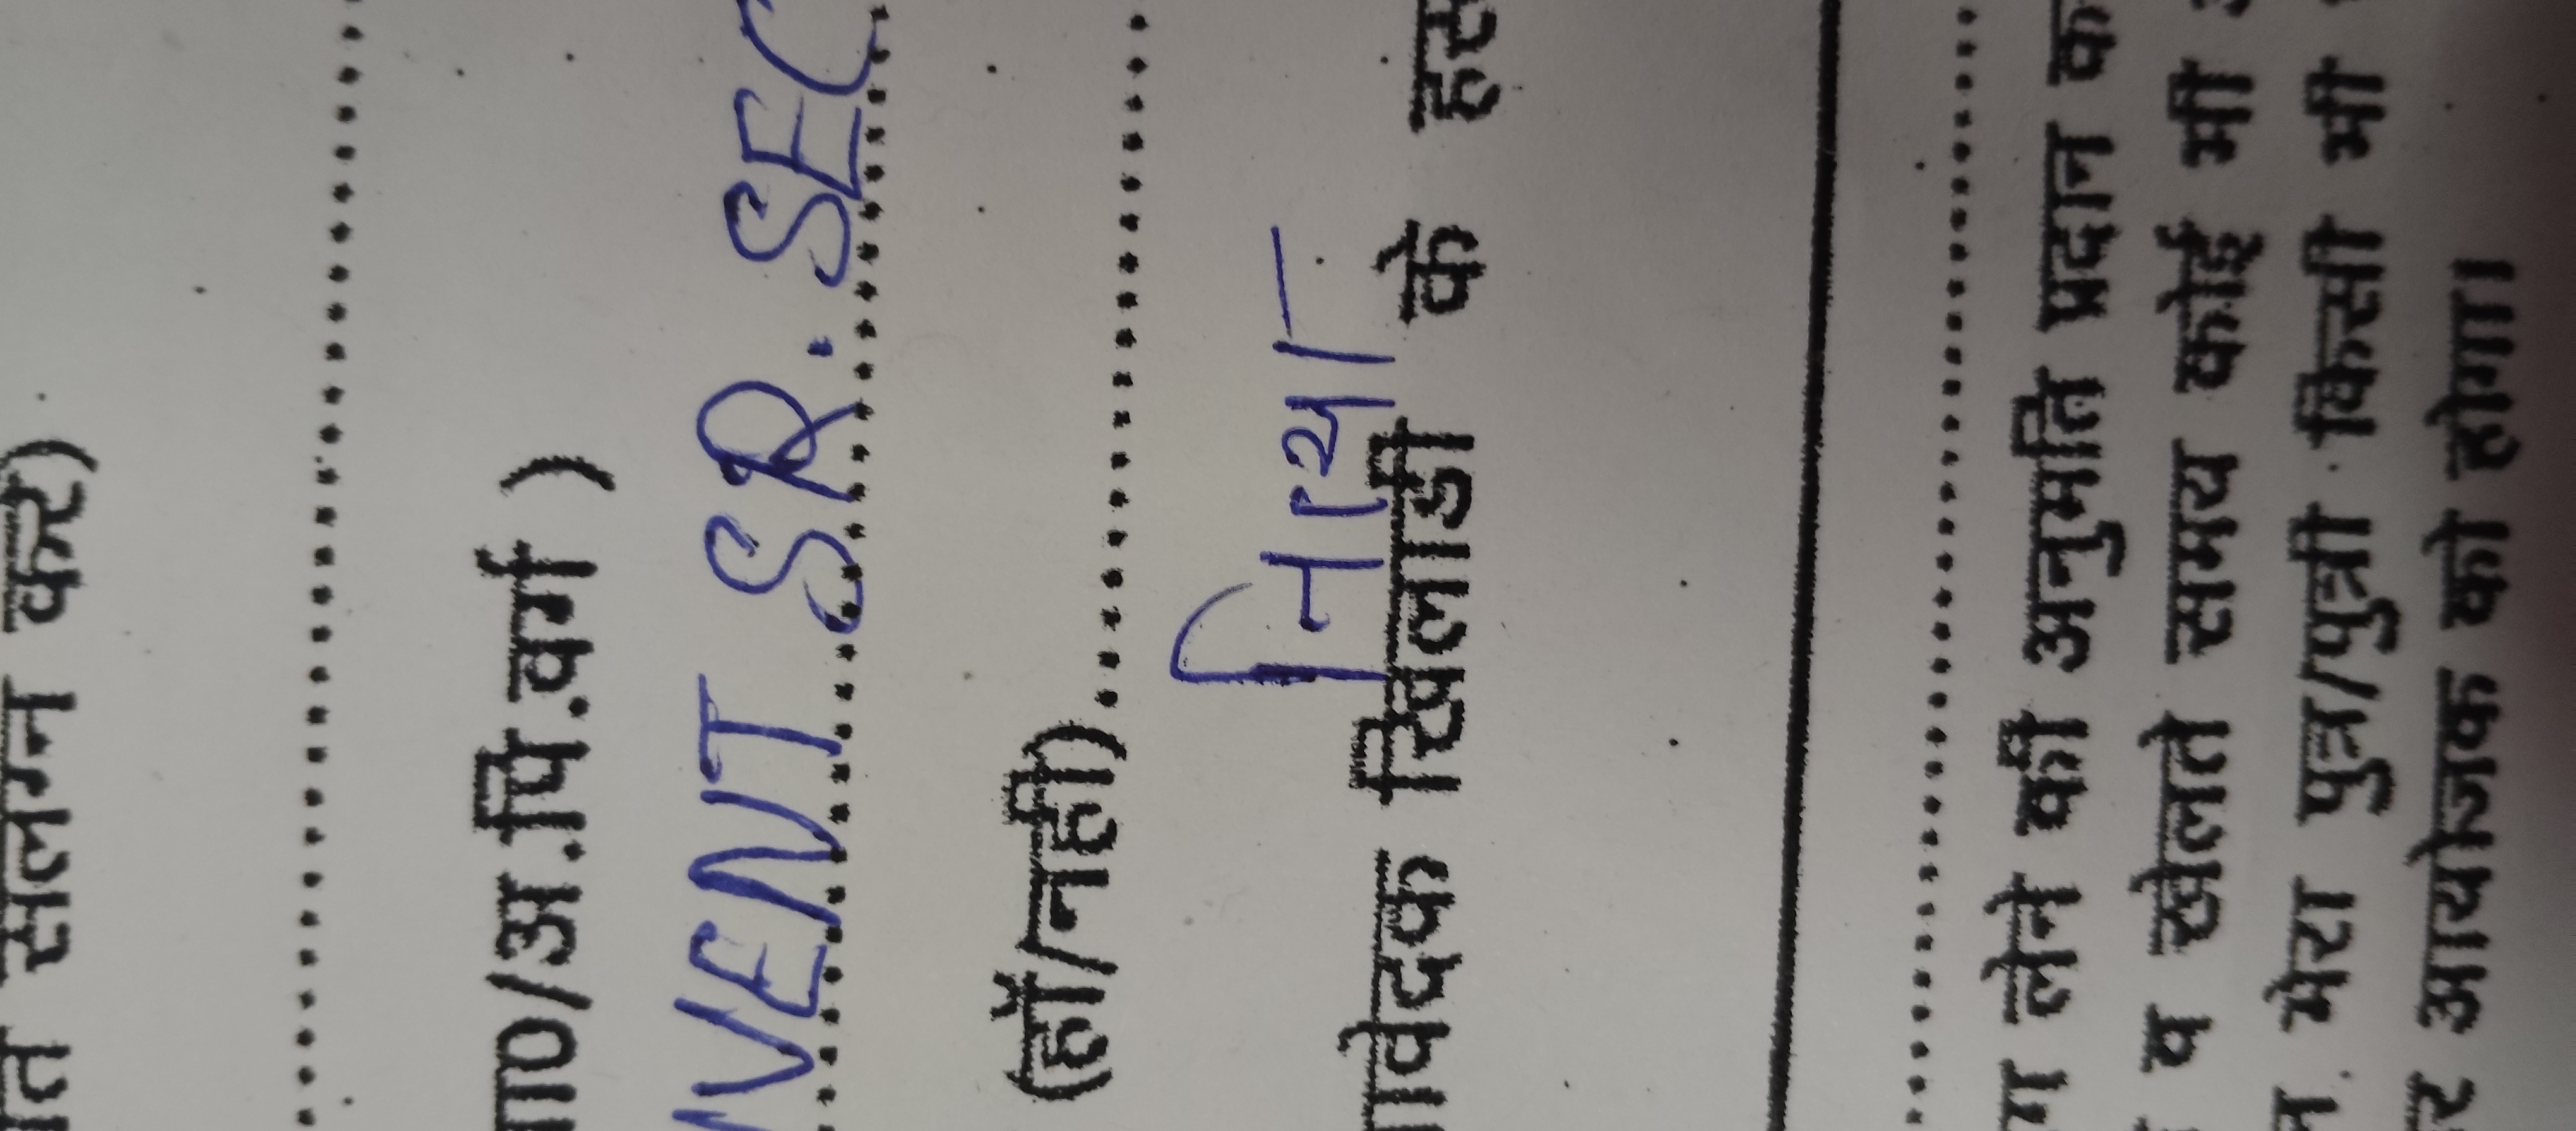 त सलग्न करे)
गा०/अ.पि.वर्ग )
VENT SR. SEC
(हाँ/नही)
नित्या
आवेदक खिलाडी के हस्
ग लेने की अनुमति प्रदान क
य खेलते समय कोई भी
मेरा पुत्र/पुत्री किसी भी
र आयोजक को होगा।